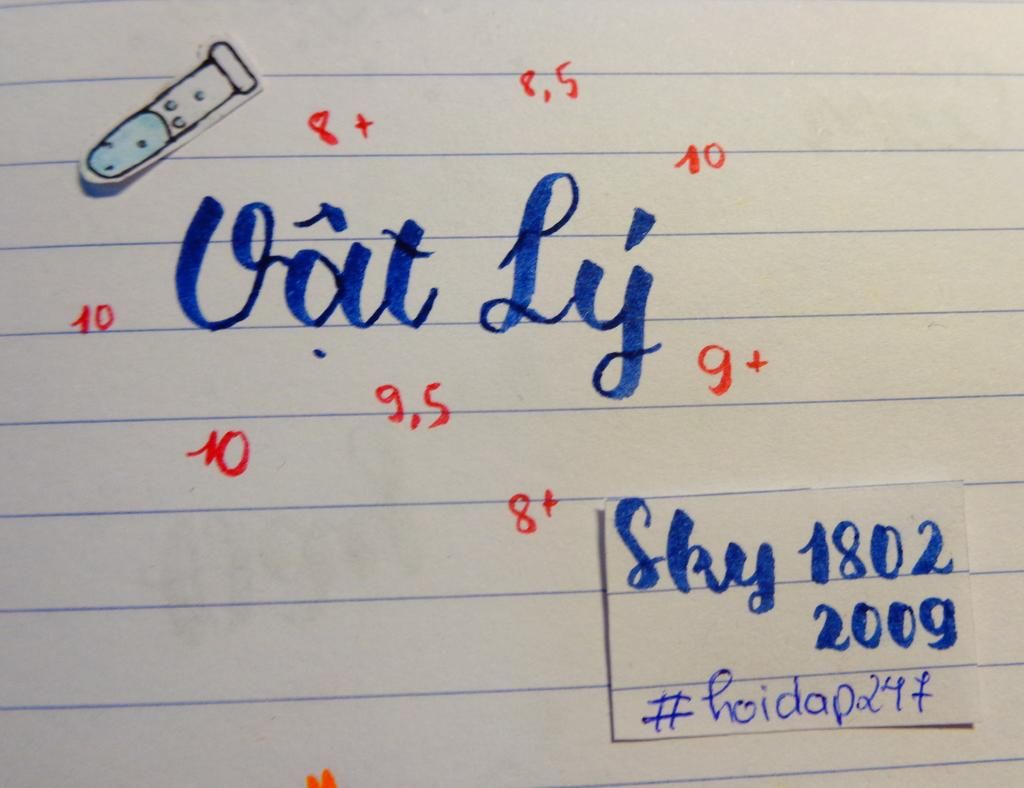 8,5
8+
10
Vật Lý
10
9+
9,5
10
8+
Sky 1802
2009
#hoidap247